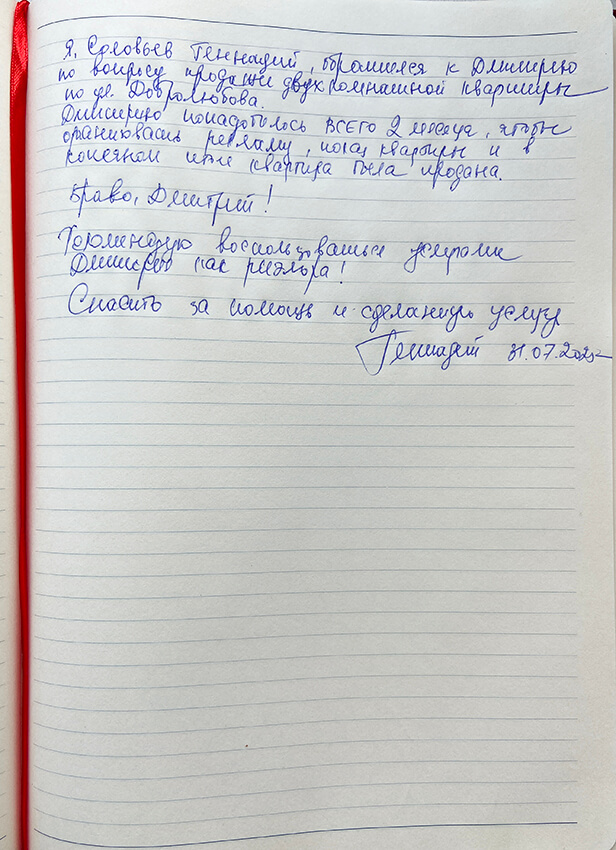 Я, Соловьев Геннадий, обратился к Дмитрию
по вопросу продажи двухкомнатной квартиры
по ул. Добролюбова.
Дмитрию понадобилось ВСЕГО 2 месяца, чтобы
организовать рекламу, показ квартиры и в
конечном итоге квартира была продана.
Браво, Дмитрий!
Рекомендую воспользоваться услугами
Дмитрия как риэлтора!
Спасибо за помощь и сделанную услугу
Геннадий 31.07.2025